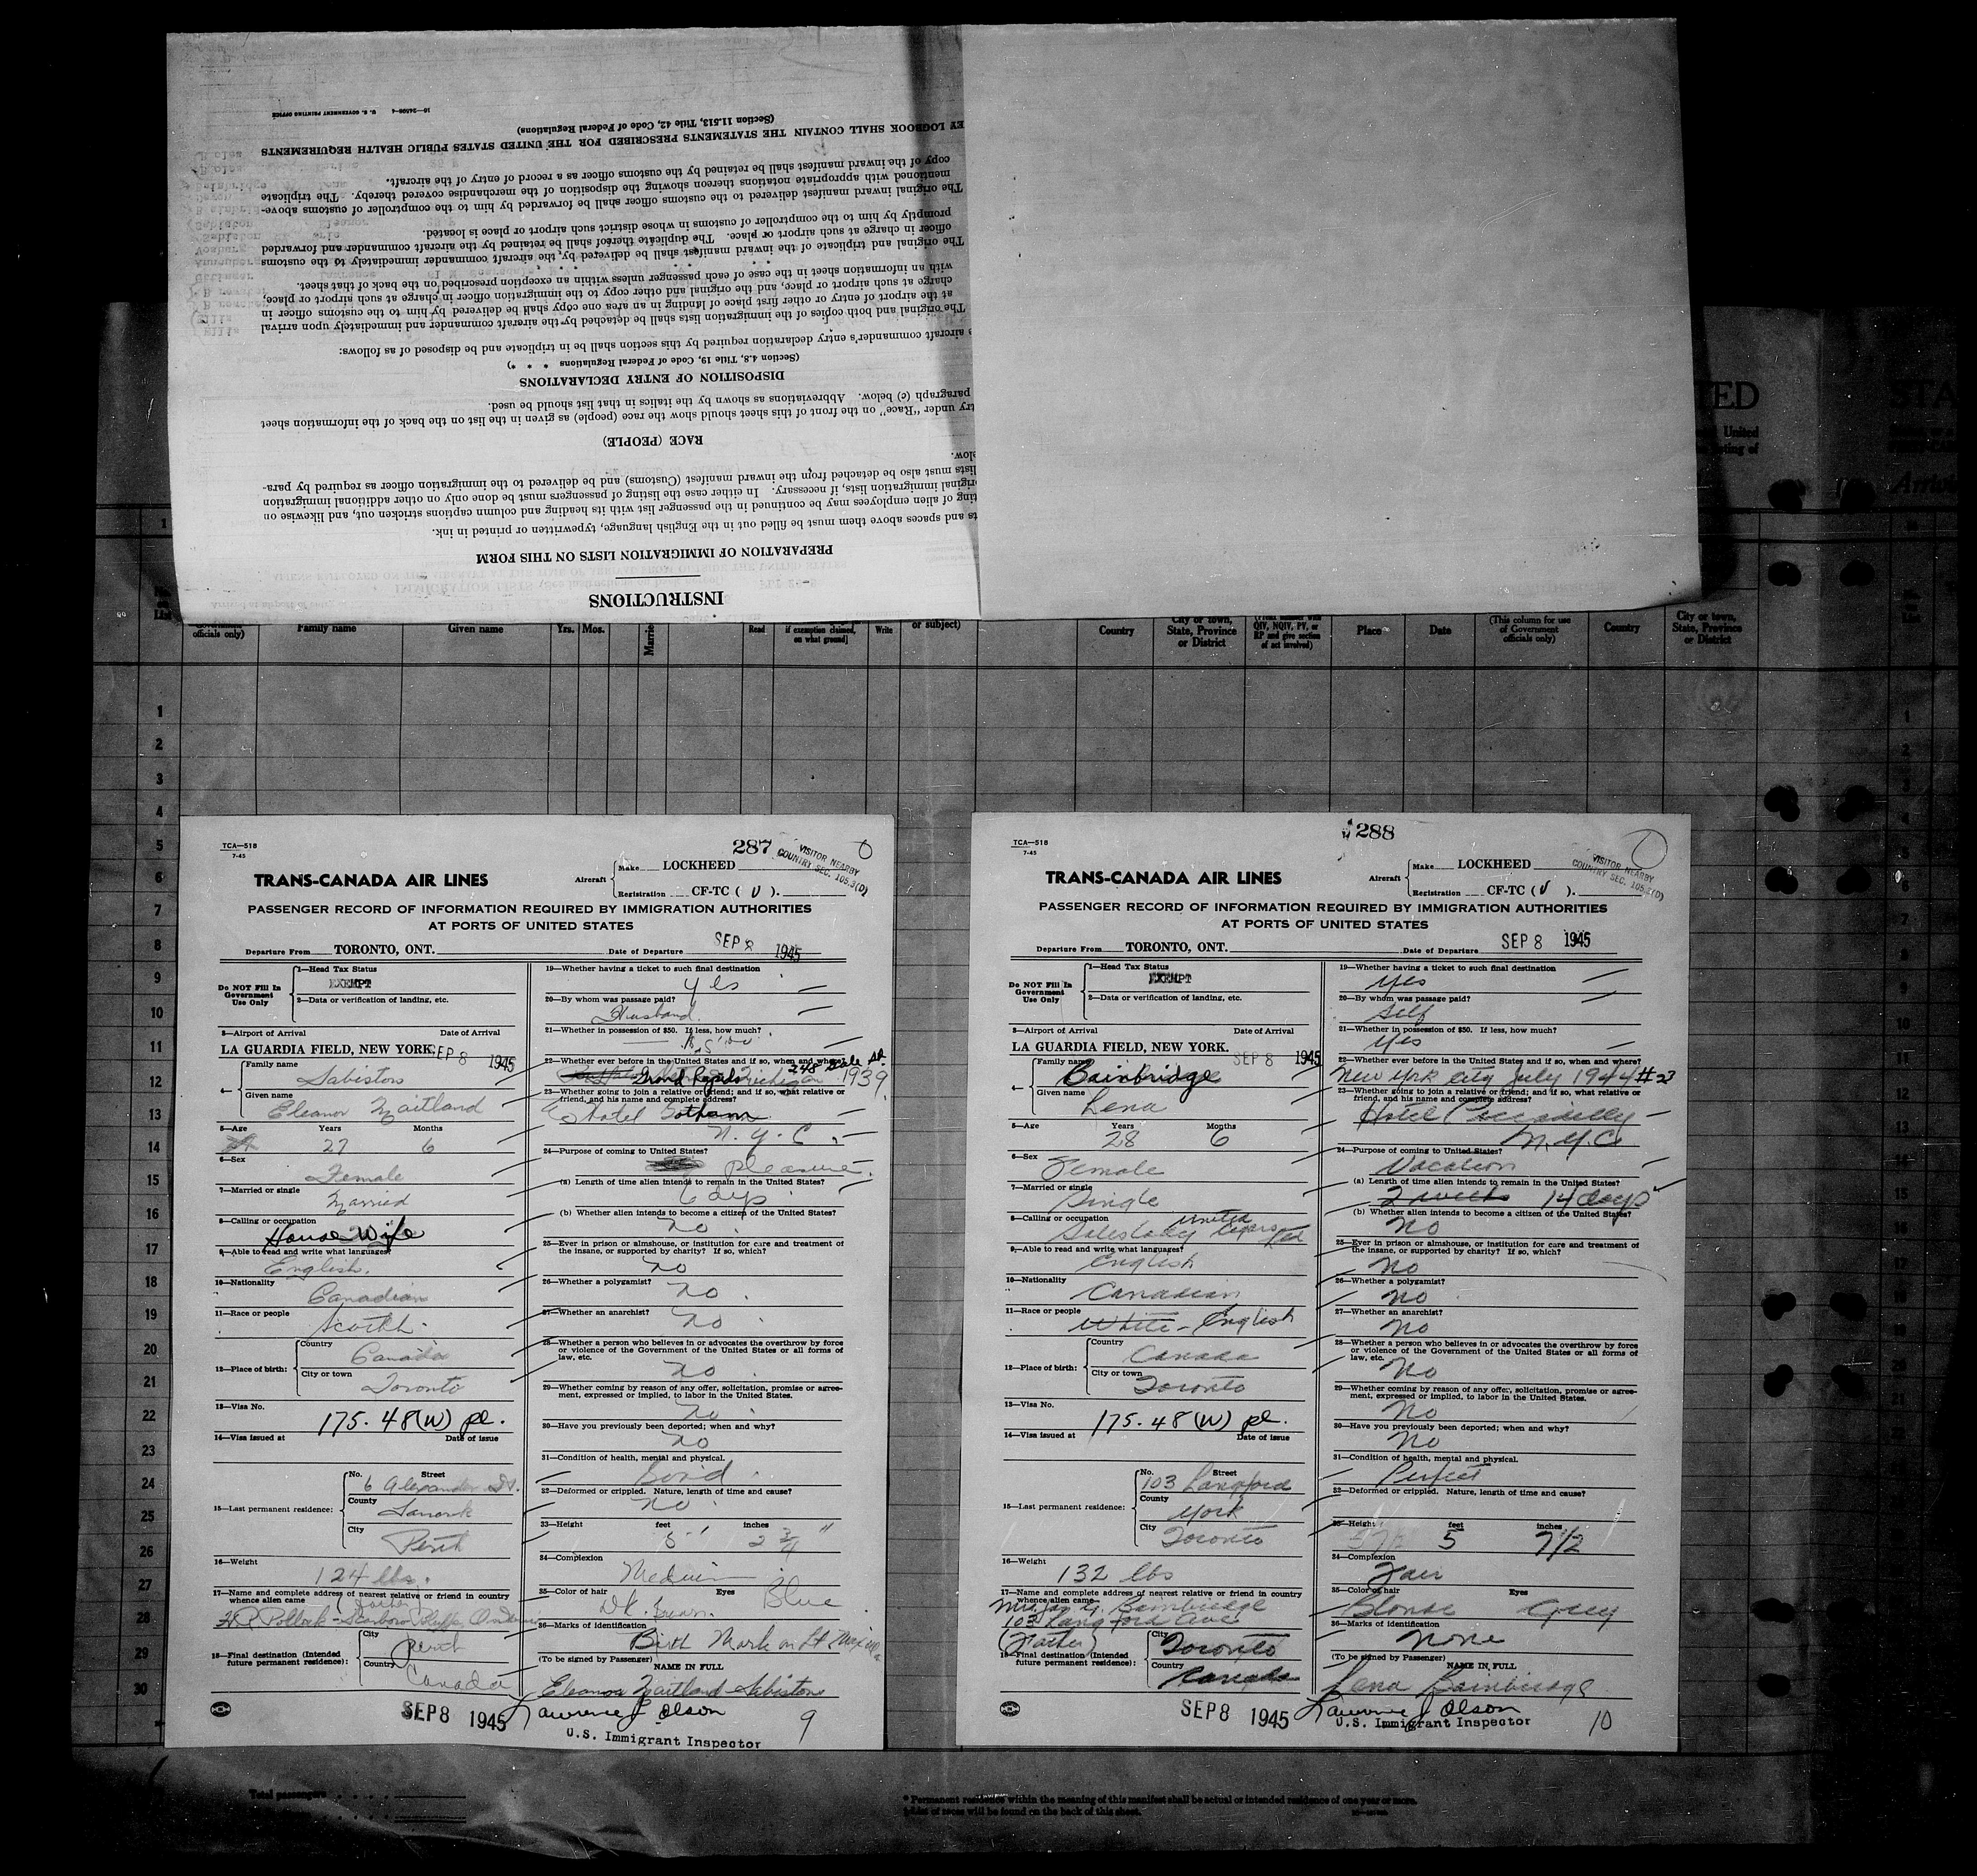 INSTRUCTIONS
PREPARATION OF IMMIGRATION LISTS ON THIS FORM
ts and spaces above them must be filled out in the English language, typewritten or printed in ink.
ting of alien employees may be continued in the passenger list with its heading and column captions stricken out, and likewise on
original immigration lists, if necessary. In either case the listing of passengers must be done only on other additional immigration
lists must also be detached from the inward manifest (Customs) and be delivered to the immigration officer as required by para-
elow.
RACE (PEOPLE)
try under "Race" on the front of this sheet should show the race (people) as given in the list on the back of the information sheet
paragraph (c) below. Abbreviations as shown by the italics in that list should be used.
DISPOSITION OF ENTRY DECLARATIONS
(Section 4.8, Title 19, Code of Federal Regulations * * *)
e aircraft commander's entry declaration required by this section shall be in triplicate and be disposed of as follows:
The original and both copies of the immigration lists shall be detached by the aircraft commander and immediately upon arrival
at the airport of entry or other first place of landing in an area one copy shall be delivered by him to the customs officer in
charge at such airport or place, and the original and other copy to the immigration officer in charge at such airport or place,
with an information sheet in the case of each passenger unless within an exception prescribed on the back of that sheet.
The original and triplicate of the inward manifest shall be delivered by the aircraft commander immediately to the customs
officer in charge at such airport or place. The duplicate thereof shall be retained by the aircraft commander and forwarded
promptly by him to the comptroller of customs in whose district such airport or place is located.
The original inward manifest delivered to the customs officer shall be forwarded by him to the comptroller of customs above-
mentioned with appropriate notations thereon showing the disposition of the merchandise covered thereby. The triplicate
copy of the inward manifest shall be retained by the customs officer as a record of entry of the aircraft.
EY LOGBOOK SHALL CONTAIN THE PRESCRIBED STATEMENTS FOR THE UNITED STATES PUBLIC HEALTH REQUIREMENTS
(Section 11.513, Title 42, Code of Federal Regulations)
U. S. GOVERNMENT PRINTING OFFICE 16—24508-4
TED STA
United
Arriv
officials only) Family name Given name Yrs. Mos. Married Read if exemption claimed, on what ground] Write or subject) Country City or town, State, Province or District QIV, NQIV, PV, or RP and give section of act involved) Place Date (This column for use of Government officials only) Country City or town, State, Province or District
1
2
3
4
5
6
7
8
9
10
11
12
13
14
15
16
17
18
19
20
21
22
23
24
25
26
27
28
29
30
TCA—518
7-45
287
VISITOR NEARBY
COUNTRY SEC. 105.3(D)
TRANS-CANADA AIR LINES
Aircraft Make LOCKHEED
Registration CF-TC ( V ).
PASSENGER RECORD OF INFORMATION REQUIRED BY IMMIGRATION AUTHORITIES
AT PORTS OF UNITED STATES
Departure From TORONTO, ONT. Date of Departure SEP 8 1945
Do NOT Fill In Government Use Only
1—Head Tax Status
EXEMPT
2—Data or verification of landing, etc.
3—Airport of Arrival Date of Arrival
LA GUARDIA FIELD, NEW YORK. SEP 8 1945
4— Family name
Sabiston
Given name
Eleanor Maitland
5—Age Years Months
27 6
6—Sex
Female
7—Married or single
Married
8—Calling or occupation
House Wife
9—Able to read and write what languages?
English.
10—Nationality
Canadian
11—Race or people
Scottish.
12—Place of birth: Country
Canada
City or town
Toronto
13—Visa No.
175.48(W) pl.
14—Visa issued at Date of issue
15—Last permanent residence: No. Street
6 Alexander St.
County
Lanark
City
Perth
16—Weight
124 lbs.
17—Name and complete address of nearest relative or friend in country
whence alien came
(Father)
Pollock - Scarboro Bluffs, Ontario
18—Final destination (Intended
future permanent residence): City
Perth
Country
Canada
19—Whether having a ticket to such final destination
Yes
20—By whom was passage paid?
Husband.
21—Whether in possession of $50. If less, how much?
22—Whether ever before in the United States and if so, when and where?
Grand Rapids Michigan 1939
23—Whether going to join a relative or friend; and if so, what relative or
friend, and his name and complete address?
Hotel Gotham
N.Y.C.
24—Purpose of coming to United States?
pleasure.
(a) Length of time alien intends to remain in the United States?
6 days
(b) Whether alien intends to become a citizen of the United States?
No.
25—Ever in prison or almshouse, or institution for care and treatment of
the insane, or supported by charity? If so, which?
No
26—Whether a polygamist?
No.
27—Whether an anarchist?
No.
28—Whether a person who believes in or advocates the overthrow by force
or violence of the Government of the United States or all forms of
law, etc.
No.
29—Whether coming by reason of any offer, solicitation, promise or agree-
ment, expressed or implied, to labor in the United States.
No.
30—Have you previously been deported; when and why?
No
31—Condition of health, mental and physical.
Good.
32—Deformed or crippled. Nature, length of time and cause?
No.
33—Height feet inches
5' 2 3/4"
34—Complexion
Medium
35—Color of hair Eyes
Dk. Brown. Blue
36—Marks of identification
Birth Mark on Lt
(To be signed by Passenger) NAME IN FULL
Eleanor Maitland Sabiston
SEP 8 1945 Lawrence J Olson 9
U.S. Immigrant Inspector
TCA—518
7-45
288
VISITOR NEARBY
COUNTRY SEC. 105.3(D)
TRANS-CANADA AIR LINES
Aircraft Make LOCKHEED
Registration CF-TC ( V ).
PASSENGER RECORD OF INFORMATION REQUIRED BY IMMIGRATION AUTHORITIES
AT PORTS OF UNITED STATES
Departure From TORONTO, ONT. Date of Departure SEP 8 1945
Do NOT Fill In Government Use Only
1—Head Tax Status
EXEMPT
2—Data or verification of landing, etc.
3—Airport of Arrival Date of Arrival
LA GUARDIA FIELD, NEW YORK. SEP 8 1945
4— Family name
Bainbridge
Given name
Lena
5—Age Years Months
28 6
6—Sex
Female
7—Married or single
Single
8—Calling or occupation
Saleslady United Cigars Ltd
9—Able to read and write what languages?
English
10—Nationality
Canadian
11—Race or people
White - English
12—Place of birth: Country
Canada
City or town
Toronto
13—Visa No.
175.48(W) pl.
14—Visa issued at Date of issue
15—Last permanent residence: No. Street
103 Langford
County
York
City
Toronto
16—Weight
132 lbs
17—Name and complete address of nearest relative or friend in country
whence alien came
Bainbridge
103 Langford Ave
(Father)
18—Final destination (Intended
future permanent residence): City
Toronto
Country
Canada
19—Whether having a ticket to such final destination
Yes
20—By whom was passage paid?
Self
21—Whether in possession of $50. If less, how much?
Yes
22—Whether ever before in the United States and if so, when and where?
New York City July 1944 #23
23—Whether going to join a relative or friend; and if so, what relative or
friend, and his name and complete address?
Hotel Piccadilly
N.Y.C.
24—Purpose of coming to United States?
Vacation
(a) Length of time alien intends to remain in the United States?
2 weeks 14 days
(b) Whether alien intends to become a citizen of the United States?
No
25—Ever in prison or almshouse, or institution for care and treatment of
the insane, or supported by charity? If so, which?
No
26—Whether a polygamist?
No
27—Whether an anarchist?
No
28—Whether a person who believes in or advocates the overthrow by force
or violence of the Government of the United States or all forms of
law, etc.
No
29—Whether coming by reason of any offer, solicitation, promise or agree-
ment, expressed or implied, to labor in the United States.
No
30—Have you previously been deported; when and why?
No
31—Condition of health, mental and physical.
Perfect
32—Deformed or crippled. Nature, length of time and cause?
33—Height feet inches
5 7 1/2
34—Complexion
Fair
35—Color of hair Eyes
Blonde Grey
36—Marks of identification
None
(To be signed by Passenger) NAME IN FULL
Lena Bainbridge
SEP 8 1945 Lawrence J Olson 10
U.S. Immigrant Inspector
Total passengers
* Permanent residence within the meaning of this manifest shall be actual or intended residence of one year or more.
† List of races will be found on the back of this sheet.